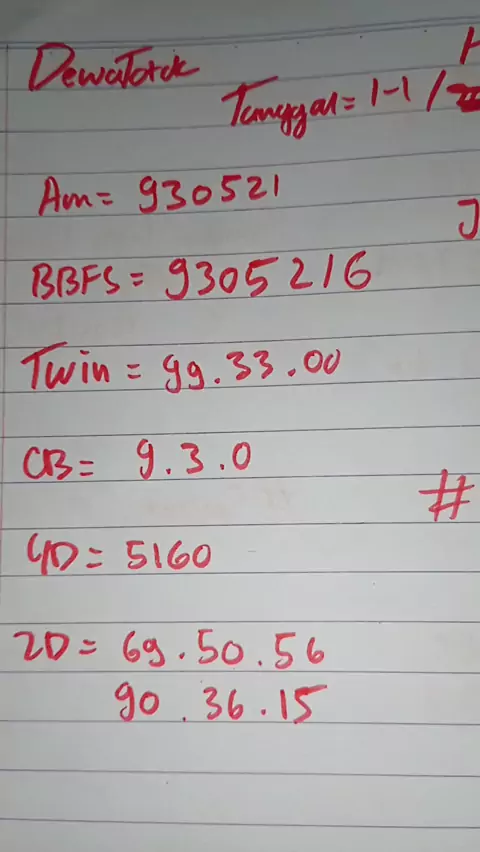 DewaTorok
Tanggal = 1-1 /
Am = 930521
BBFS = 9305216
Twin = 99.33.00
CB = 9.3.0
#
4D = 5160
2D = 69.50.56
90.36.15